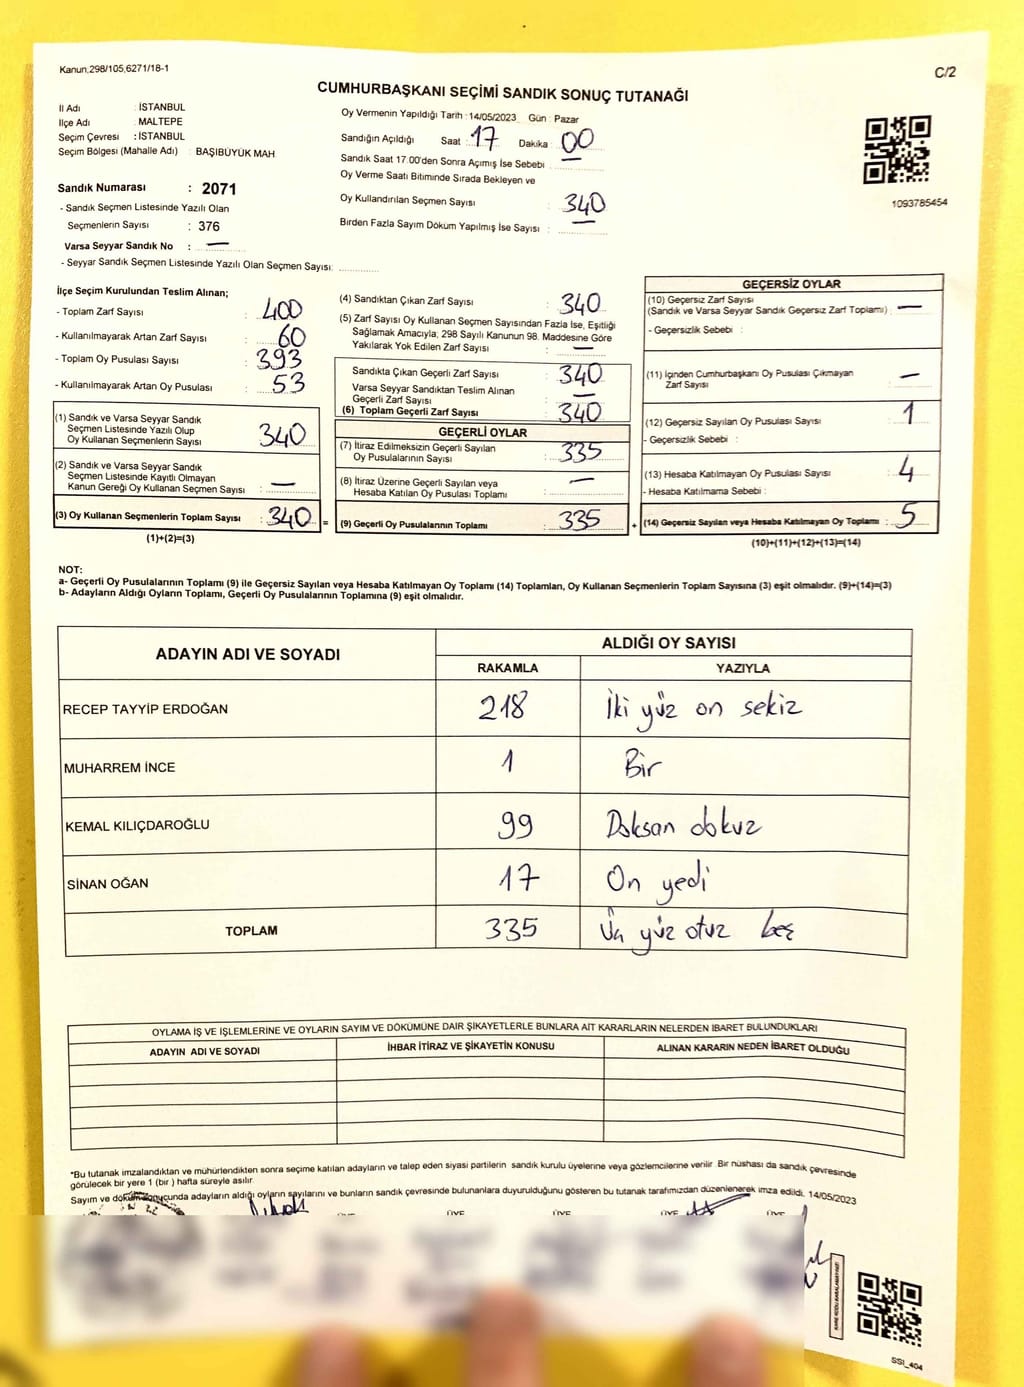 Kanun,298/105,6271/18-1
C/2
CUMHURBAŞKANI SEÇİMİ SANDIK SONUÇ TUTANAĞI
İl Adı : İSTANBUL
İlçe Adı : MALTEPE
Seçim Çevresi : İSTANBUL
Seçim Bölgesi (Mahalle Adı) : BAŞIBÜYÜK MAH
Sandık Numarası : 2071
- Sandık Seçmen Listesinde Yazılı Olan
Seçmenlerin Sayısı : 376
Varsa Seyyar Sandık No : —
- Seyyar Sandık Seçmen Listesinde Yazılı Olan Seçmen Sayısı:
Oy Vermenin Yapıldığı Tarih : 14/05/2023 Gün : Pazar
Sandığın Açıldığı Saat : 17 Dakika : 00
Sandık Saat 17.00'den Sonra Açımış İse Sebebi : —
Oy Verme Saati Bitiminde Sırada Bekleyen ve
Oy Kullandırılan Seçmen Sayısı : 340
Birden Fazla Sayım Döküm Yapılmış İse Sayısı : —
1093785454
İlçe Seçim Kurulundan Teslim Alınan;
- Toplam Zarf Sayısı : 400
- Kullanılmayarak Artan Zarf Sayısı : 60
- Toplam Oy Pusulası Sayısı : 393
- Kullanılmayarak Artan Oy Pusulası : 53
(1) Sandık ve Varsa Seyyar Sandık
Seçmen Listesinde Yazılı Olup
Oy Kullanan Seçmenlerin Sayısı : 340
(2) Sandık ve Varsa Seyyar Sandık
Seçmen Listesinde Kayıtlı Olmayan
Kanun Gereği Oy Kullanan Seçmen Sayısı : —
(3) Oy Kullanan Seçmenlerin Toplam Sayısı : 340 =
(1)+(2)=(3)
(4) Sandıktan Çıkan Zarf Sayısı : 340
(5) Zarf Sayısı Oy Kullanan Seçmen Sayısından Fazla İse, Eşitliği
Sağlamak Amacıyla; 298 Sayılı Kanunun 98. Maddesine Göre
Yakılarak Yok Edilen Zarf Sayısı : —
Sandıkta Çıkan Geçerli Zarf Sayısı : 340
Varsa Seyyar Sandıktan Teslim Alınan
Geçerli Zarf Sayısı : —
(6) Toplam Geçerli Zarf Sayısı : 340
GEÇERLİ OYLAR
(7) İtiraz Edilmeksizin Geçerli Sayılan
Oy Pusulalarının Sayısı : 335
(8) İtiraz Üzerine Geçerli Sayılan veya
Hesaba Katılan Oy Pusulası Toplamı : —
(9) Geçerli Oy Pusulalarının Toplamı : 335 +
GEÇERSİZ OYLAR
(10) Geçersiz Zarf Sayısı
(Sandık ve Varsa Seyyar Sandık Geçersiz Zarf Toplamı) : —
- Geçersizlik Sebebi :
(11) İçinden Cumhurbaşkanı Oy Pusulası Çıkmayan
Zarf Sayısı : —
(12) Geçersiz Sayılan Oy Pusulası Sayısı : 1
- Geçersizlik Sebebi :
(13) Hesaba Katılmayan Oy Pusulası Sayısı : 4
- Hesaba Katılmama Sebebi :
(14) Geçersiz Sayılan veya Hesaba Katılmayan Oy Toplamı : 5
(10)+(11)+(12)+(13)=(14)
NOT:
a- Geçerli Oy Pusulalarının Toplamı (9) ile Geçersiz Sayılan veya Hesaba Katılmayan Oy Toplamı (14) Toplamları, Oy Kullanan Seçmenlerin Toplam Sayısına (3) eşit olmalıdır. (9)+(14)=(3)
b- Adayların Aldığı Oyların Toplamı, Geçerli Oy Pusulalarının Toplamına (9) eşit olmalıdır.
ADAYIN ADI VE SOYADI
ALDIĞI OY SAYISI
RAKAMLA YAZIYLA
RECEP TAYYİP ERDOĞAN 218 İki yüz on sekiz
MUHARREM İNCE 1 Bir
KEMAL KILIÇDAROĞLU 99 Doksan dokuz
SİNAN OĞAN 17 On yedi
TOPLAM 335 Üç yüz otuz beş
OYLAMA İŞ VE İŞLEMLERİNE VE OYLARIN SAYIM VE DÖKÜMÜNE DAİR ŞİKAYETLERLE BUNLARA AİT KARARLARIN NELERDEN İBARET BULUNDUKLARI
ADAYIN ADI VE SOYADI İHBAR İTİRAZ VE ŞİKAYETİN KONUSU ALINAN KARARIN NEDEN İBARET OLDUĞU
*Bu tutanak imzalandıktan ve mühürlendikten sonra seçime katılan adayların ve talep eden siyasi partilerin sandık kurulu üyelerine veya gözlemcilerine verilir. Bir nüshası da sandık çevresinde
görülecek bir yere 1 (bir ) hafta süreyle asılır.
Sayım ve dökümü sonucunda adayların aldığı oyların sayılarını ve bunların sandık çevresinde bulunanlara duyurulduğunu gösteren bu tutanak tarafımızdan düzenlenerek imza edildi. 14/05/2023
ÜYE ÜYE ÜYE ÜYE ÜYE
SSI_404